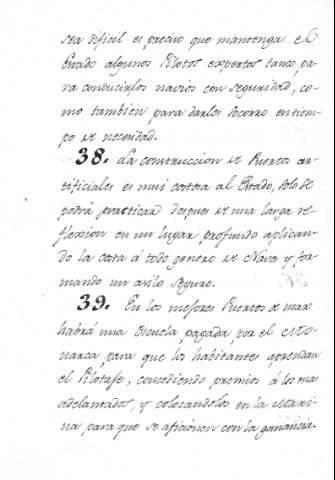 sea dificil es preciso que mantenga el
Estado algunos Pilotos expertos tanto pa-
ra conducirlos navios con seguridad, co-
mo tambien para darlos socorro en tiem-
po de necesidad.
38. La construccion de Puertos ar-
tificiales es mui costosa al Estado, solo se
podrà practicar despues de una larga re-
flexcion en un lugar profundo aplican-
do la cata á todo genero de Naves y for-
mando un asilo seguro.
39. En los mejores Puertos de mar
habrá una escuela pagada por el Mo-
narca, para que los habitantes aprendan
el Pilotaje, concediendo premios á los mas
adelantados, y colocandolos en la Mari-
na para que se aficionen con la ganancia.